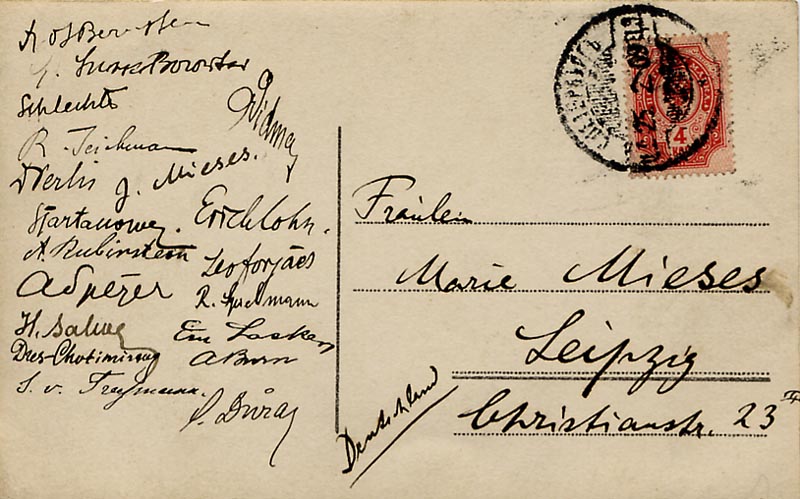 O S Bernstein
Schlechter
Vidmar
R. Teichmann
J. Mieses.
Erich Cohn.
A. Rubinstein
Leo Forgács
Speijer
R. Spielmann
H. Salwe
Em Lasker
A Burn
Dus-Chotimirsky
S. v. Freymann.
O. Duras
4
Fräulein
Marie Mieses
Leipzig
Christianstr. 23
Deutschland